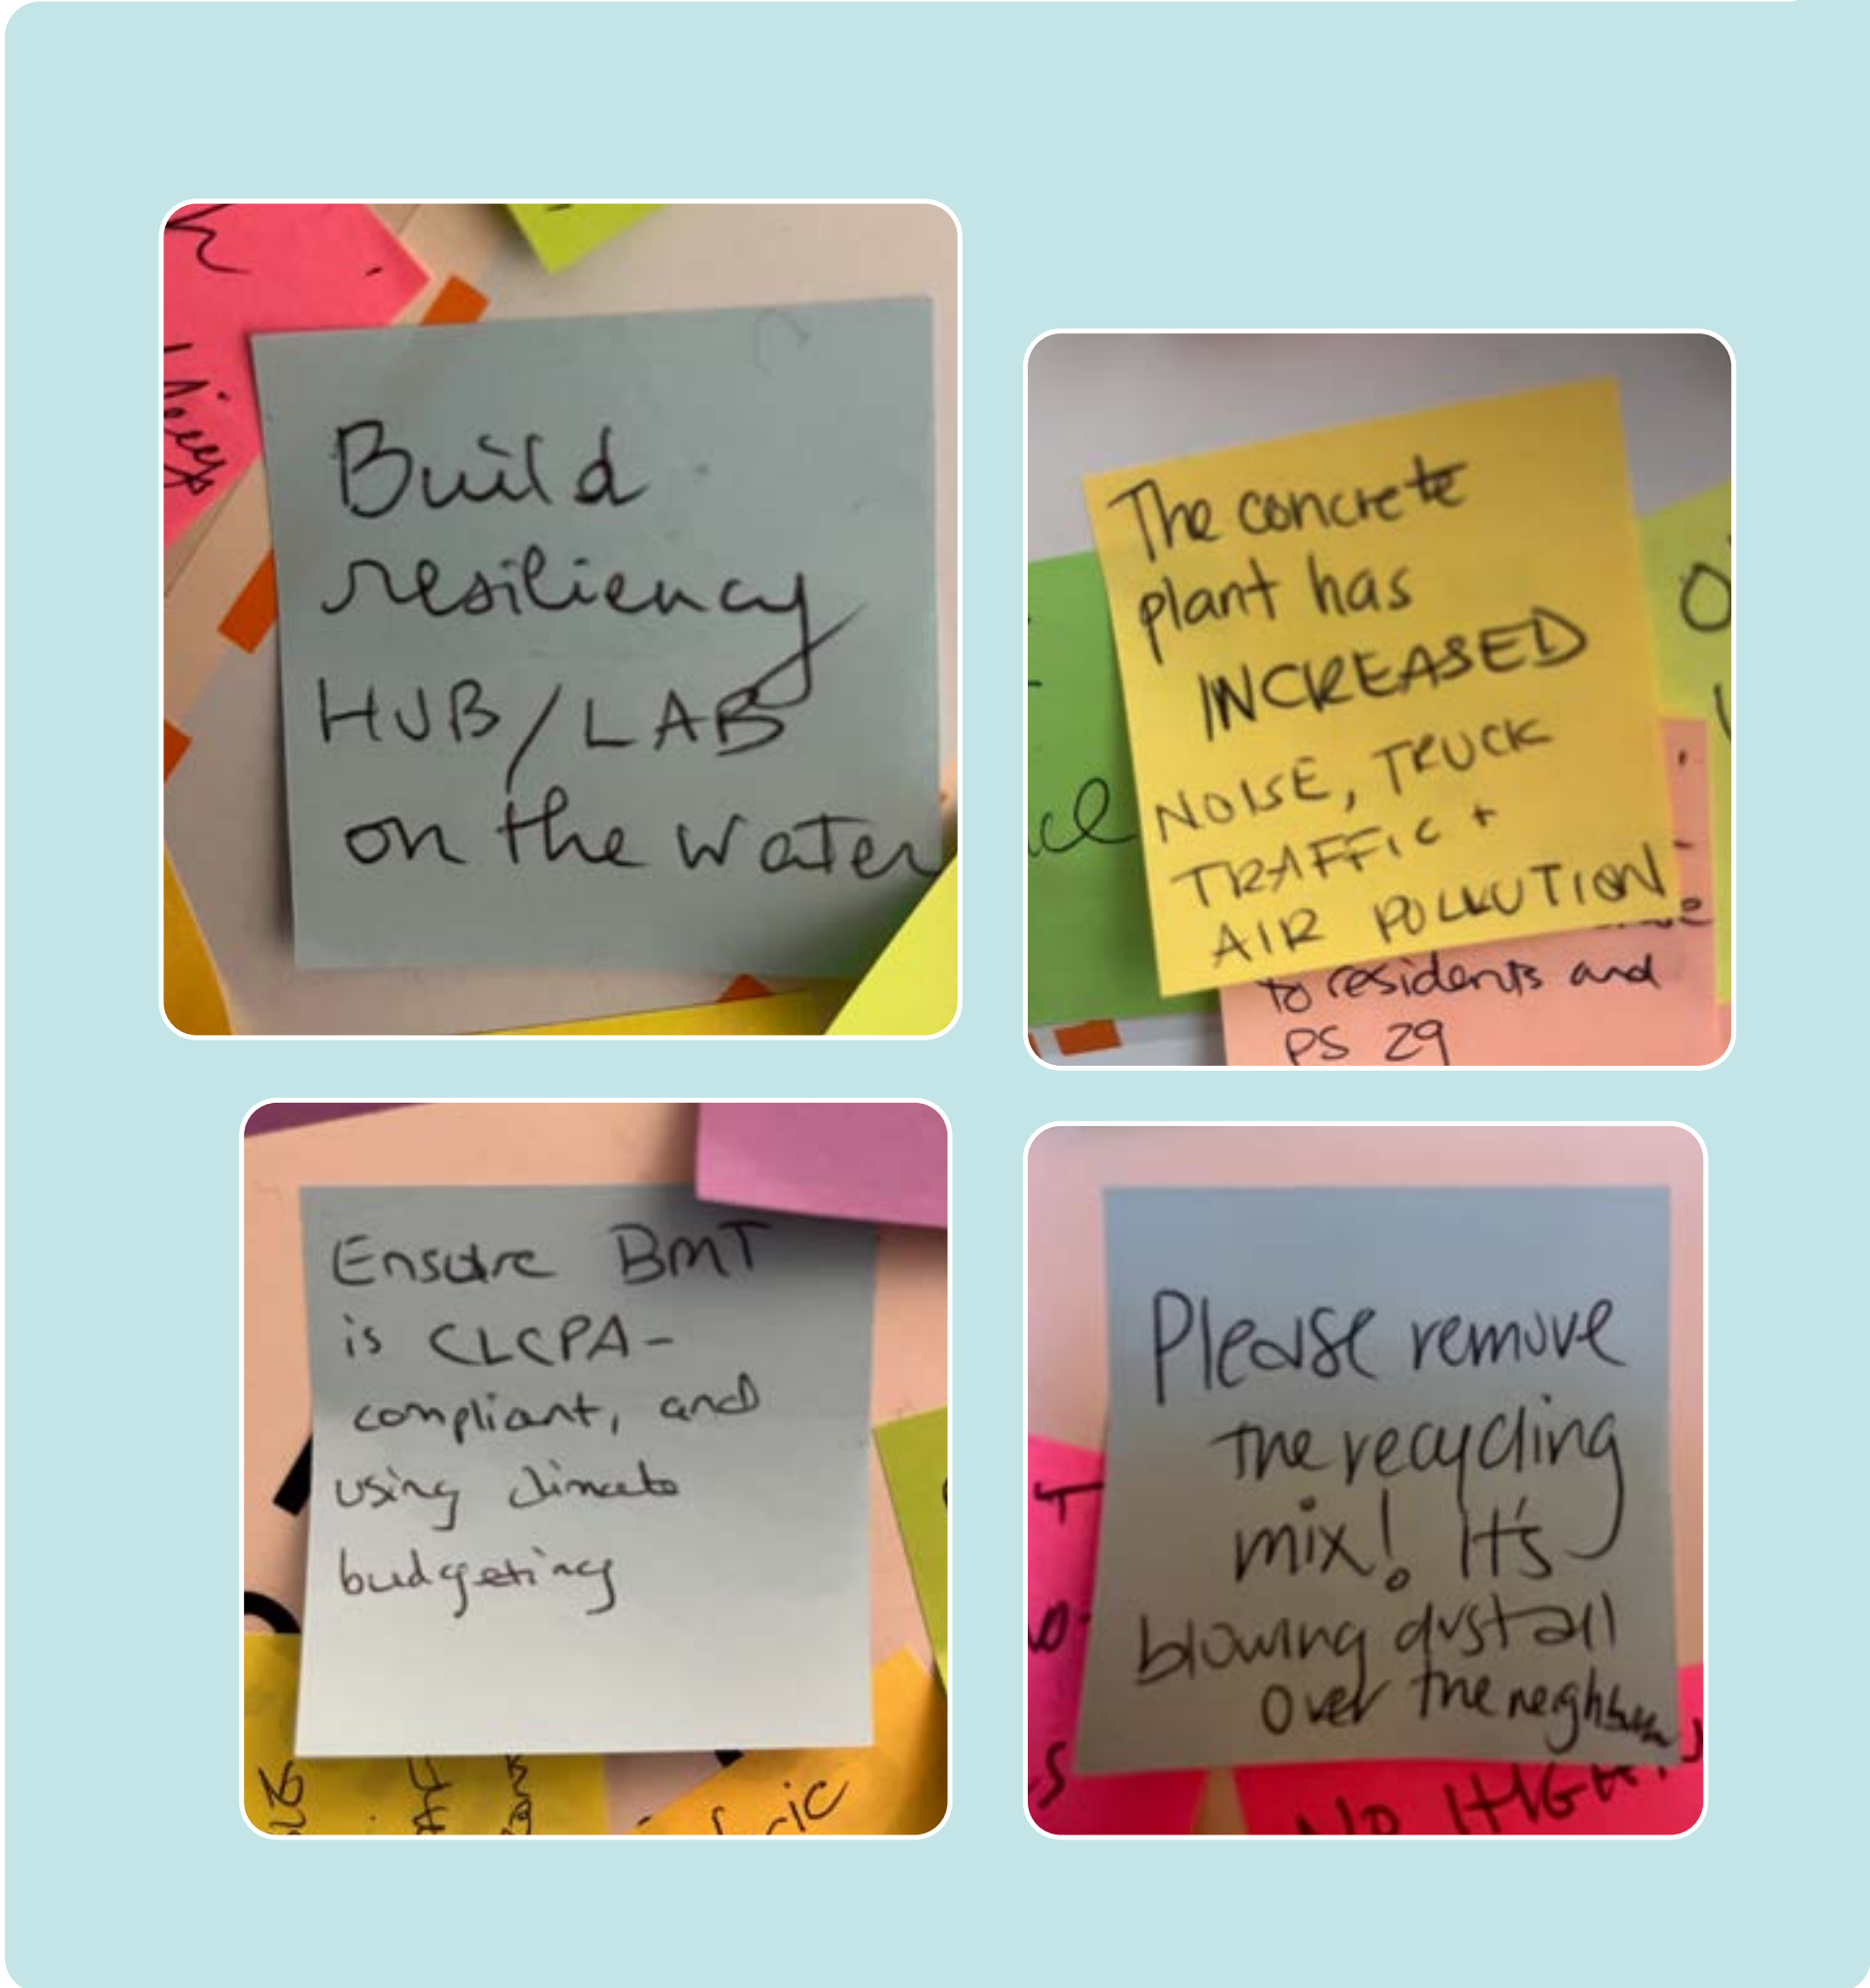 Build
resiliency
HUB/LAB
on the water
The concrete
plant has
INCREASED
NOISE, TRUCK
TRAFFIC +
AIR POLLUTION
to residents and
PS 29
Ensure BMT
is CLCPA-
compliant, and
using climate
budgeting
Please remove
the recycling
mix! It's
blowing dust all
over the neighbor
No HIGH